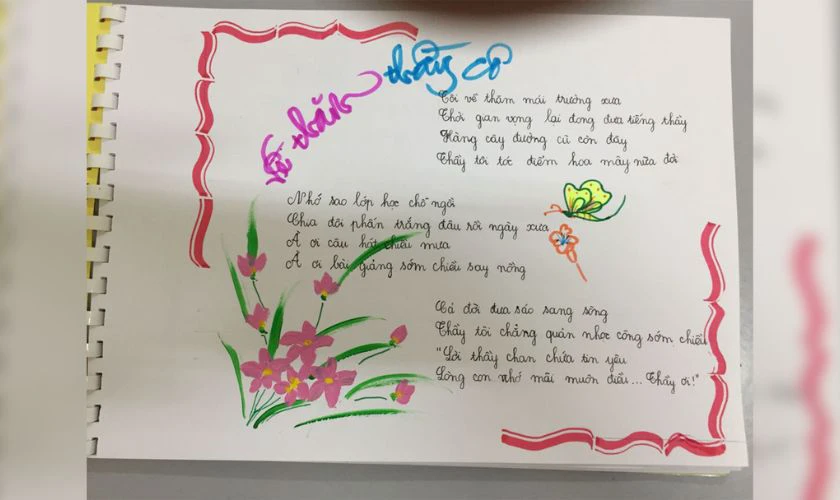 Về thăm thầy cô
Tôi về thăm mái trường xưa
Thời gian vọng lại đong đưa tiếng thầy
Hàng cây đường cũ còn đây
Thầy tôi tóc điểm hoa mây nửa đời
Nhớ sao lớp học chỗ ngồi
Chia đôi phấn trắng đâu rồi ngày xưa
À ơi câu hát chiều mưa
À ơi bài giảng sớm chiều say nồng
Cả đời đưa sáo sang sông
Thầy tôi chẳng quản nhọc công sớm chiều
"Lời thầy chan chứa tin yêu
Lòng con nhớ mãi muôn điều... Thầy ơi!"